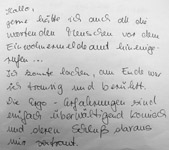 Hallo,
gerne hätte ich auch all die
wartenden Menschen vor dem
Einwohnermeldeamt hineinge-
rufen ...
Ich konnte lachen, am Ende war
ich traurig und berührt.
Die Ego-Erfahrungen sind
einfach überwältigend komisch
und deren Schluß daraus
mir vertraut.